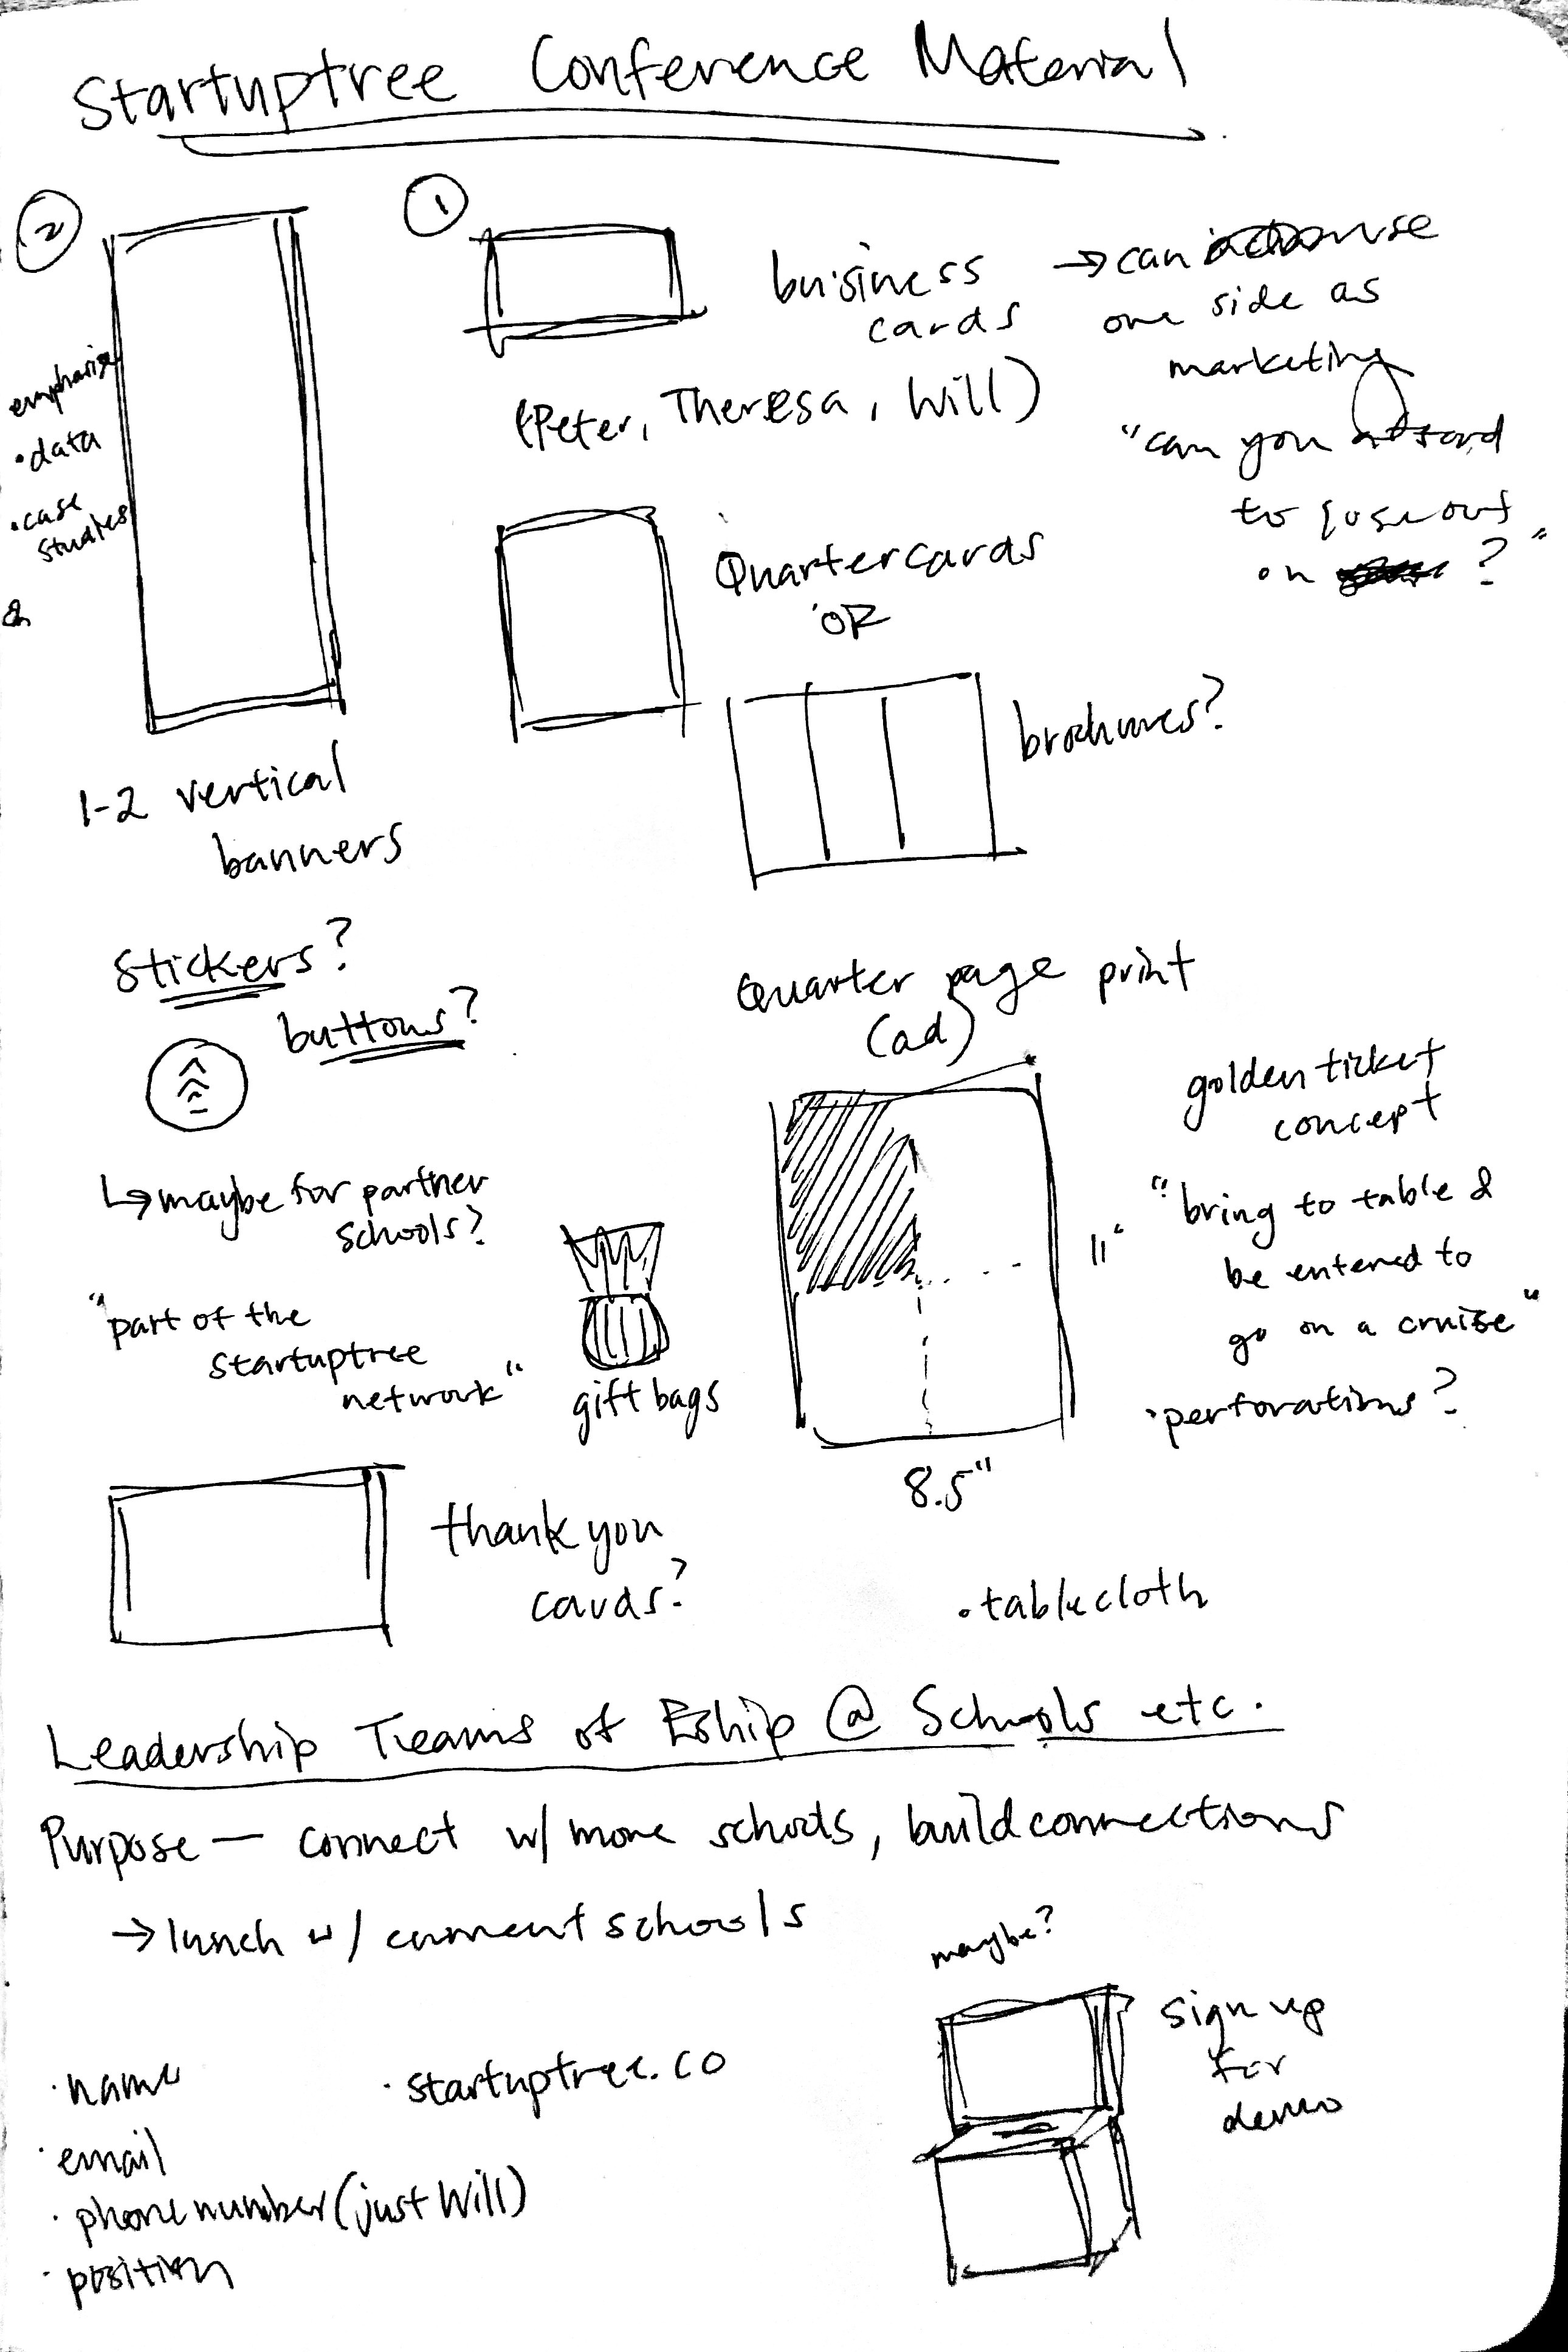 Startuptree Conference Material
②
①
emphasise
• data
• case
studies
&
1-2 vertical
banners
buisiness
cards
(Peter, Theresa, Will)
→ can use
one side as
marketing
"can you afford
to lose out
on ?"
Quartercards
OR
brochures?
Stickers?
buttons?
↳ maybe for partner
schools?
"part of the
startuptree
network"
gift bags
Quarter page print
(ad)
golden ticket
concept
"bring to table &
be entered to
go on a cruise"
• perforations?
11"
8.5"
thank you
cards?
• tablecloth
Leadership Teams of Eship @ Schools etc.
Purpose — connect w/ more schools, build connections
→ lunch w/ current schools
maybe?
sign up
for
demo
• name
• email
• phone number (just Will)
• position
• startuptree.co